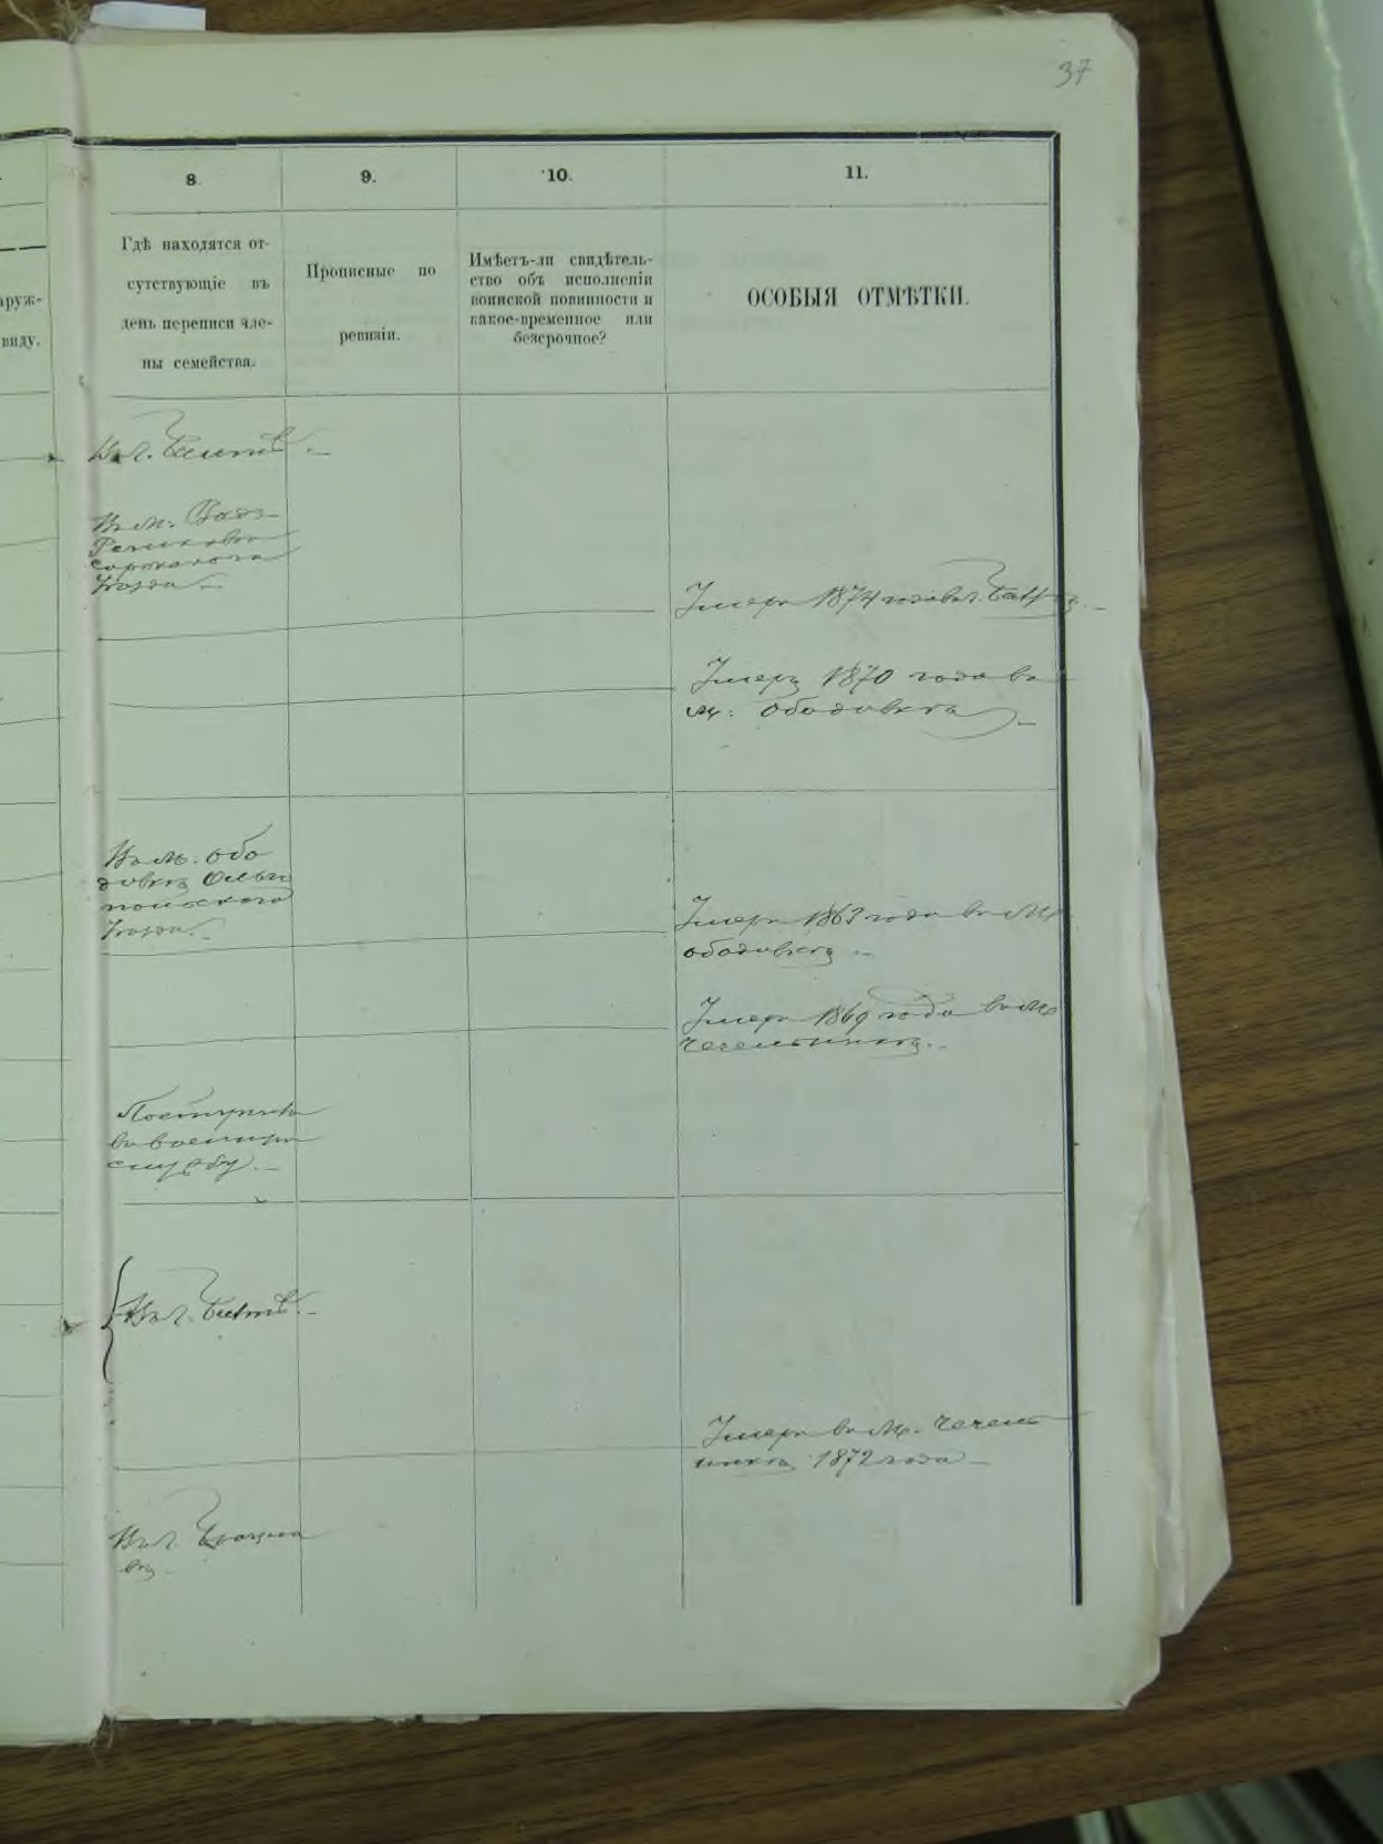 37
8.
9.
10.
11.
Гдѣ находятся от-
сутствующіе въ
день переписи чле-
ны семейства.
Прописные по
ревизіи.
Имѣетъ-ли свидѣтель-
ство объ исполненіи
воинской повинности и
какое-временное или
безсрочное?
ОСОБЫЯ ОТМѢТКИ.
аруж-
виду.
Въ г. Балтѣ.
Въ м.
Сорокскаго
Уѣзда
Умеръ 1874 года въ г.
Умеръ 1870 года въ
м. Ободовка
Въ м. Обо
довкѣ Ольго
польскаго
Уѣзда.
Умеръ 1863 года въ м.
Ободовкѣ.
Умеръ 1869 года въ м.
Чечельникѣ.
Поступилъ
въ военную
службу.
Въ г. Балтѣ.
Умеръ въ м. Чечель
никѣ 1872 года
Въ г.